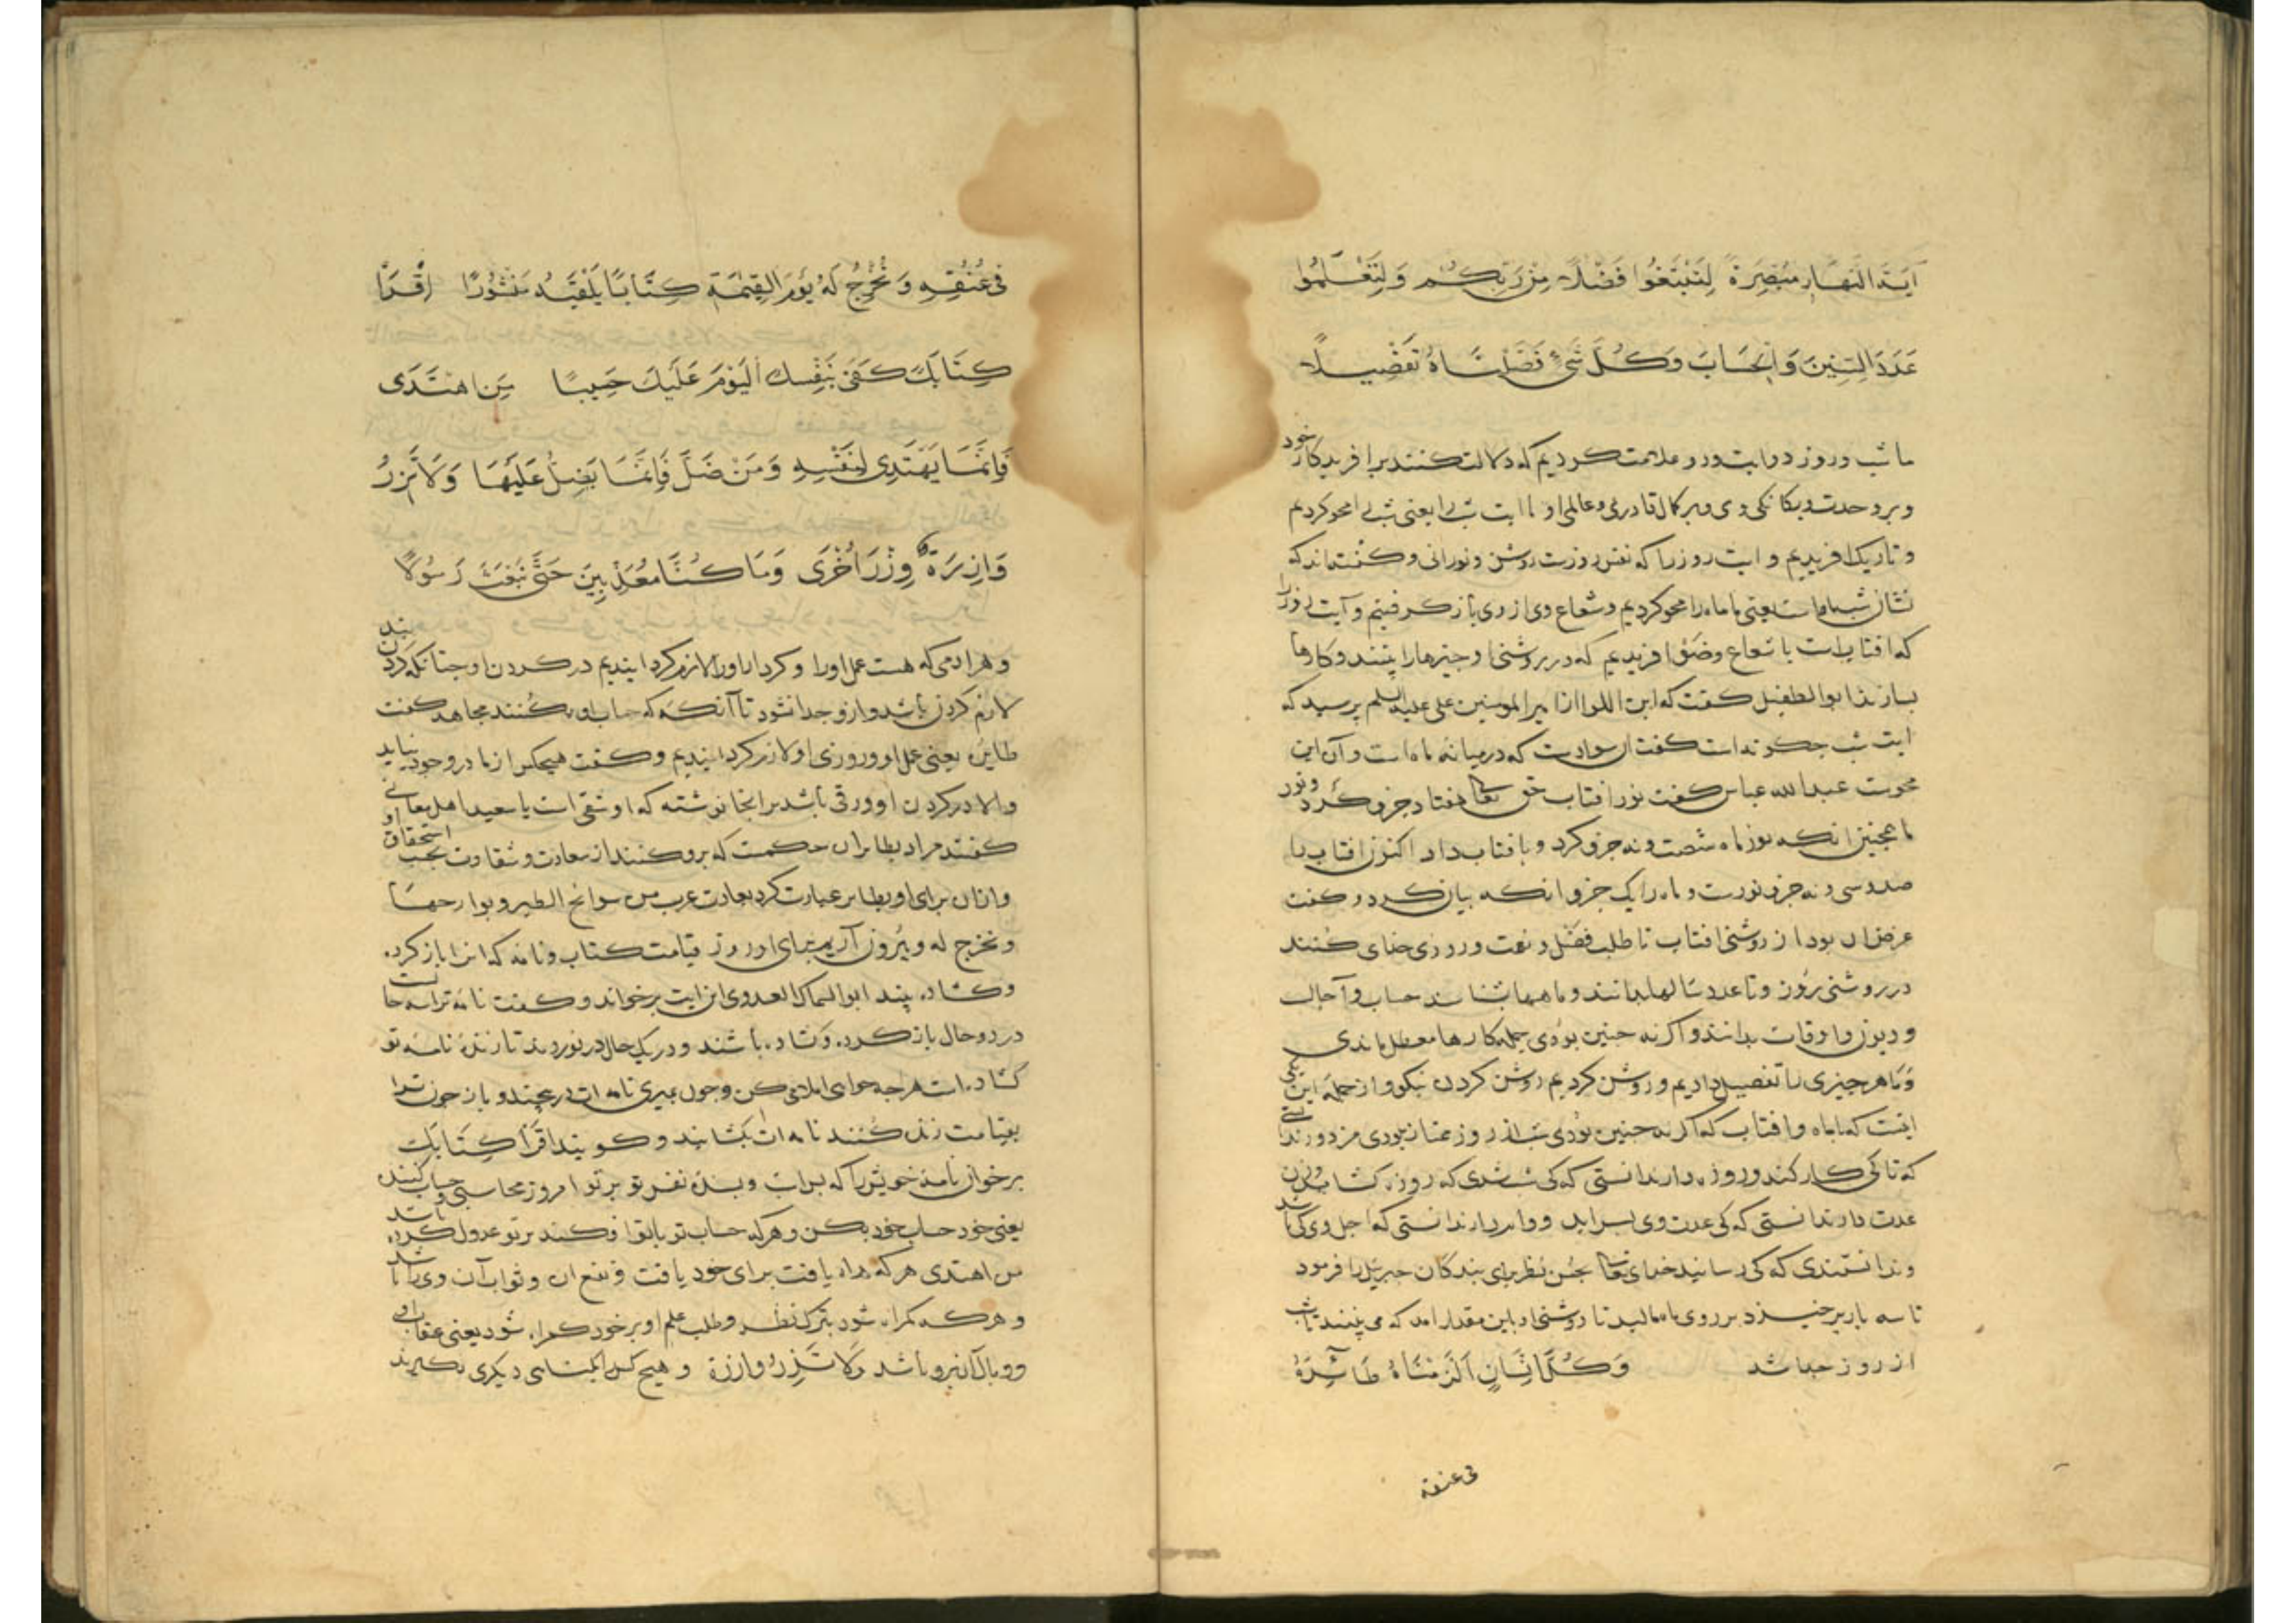 آيَةَ النَّهَارِ مُبْصِرَةً لِتَبْتَغُوا فَضْلًا مِنْ رَبِّكُمْ وَلِتَعْلَمُوا
عَدَدَ السِّنِينَ وَالْحِسَابَ وَكُلَّ شَيْءٍ فَصَّلْنَاهُ تَفْصِيلًا
ما شب و روز دو ایت و دو علامت کردیم که دلالت کنند برافریدکار خود
و بر وحدت و یکانکی وی و بر کمال قادری و عالمی او اما ایت شب را یعنی شب را محو کردیم
و تاریک افریدیم و ایت روز را که نفس روزست روشن و نورانی و کفته‌اند که
نشان شب ماه است یعنی ما ماه را محو کردیم و شعاع وی از وی باز کرفتیم و آیت روز را
که افتابست با شعاع و ضَوْء افریدیم که در روشنی او چیزها را بینند و کارها
بسازند ابوالطفیل کفت که ابن اللوا از امیرالمومنین علی علیه السلم پرسید که
ایت شب چکونه است کفت ان سوادست که در میانه ماه است و آن این
محوست عبدالله عباس کفت نور افتاب حق تعالی هفتاد جزو کرد و نور
ماه همچنین انکه نور ماه شصت و نه جزو کرد و بافتاب داد اکنون افتاب را
صد و سی و نه جزو نورست و ماه را یک جزو انکه بیان کرد و کفت
غرض ان بود از روشنی افتاب تا طلب فضل و نعت و روزی خدای کُنند
در روشنی رُوز و تا عدد سَالها بدانند و ماهها بشناسند حساب و آجال
و دیون و اوقات بدانند و اکر نه چنین بودی جمله کارها معطل ماندی
وَ ما هر چیزی را تفصیل دادیم و روشن کردیم روشن کردن نیکو و از جمله این یکی
اینست که اماه و افتاب که اکر نه چنین بُودی شب از روز ممتاز نبودی مزدور ندانستی
که تا کی کار کند و روزه دار ندانستی که کی شب شدی که روزه کشاید و زن
عدت دار ندانستی که کی عدت وی بسر اید و وامدار ندانستی که اجل وی کی باشد
و ندانستندی که کی رسانید خدای تعالی بحسن نظر برای بندکان جبرئیل را فرمود
تا سه بار پر خیزد بر روی ماه مالید تا روشنی او باین مقدار امد که می بینند تا شب
از روز جدا شد وَكُلَّ إِنْسَانٍ أَلْزَمْنَاهُ طَائِرَهُ
فی عنقه
فِي عُنُقِهِ وَنُخْرِجُ لَهُ يَوْمَ الْقِيٰمَةِ كِتَابًا يَلْقَيٰهُ مَنْشُورًا اِقْرَأْ
كِتَابَكَ كَفَىٰ بِنَفْسِكَ الْيَوْمَ عَلَيْكَ حَسِيبًا مَنِ اهْتَدَى
فَإِنَّمَا يَهْتَدِي لِنَفْسِهِ وَمَنْ ضَلَّ فَإِنَّمَا يَضِلُّ عَلَيْهَا وَلَا تَزِرُ
وَازِرَةٌ وِزْرَ أُخْرَى وَمَا كُنَّا مُعَذِّبِينَ حَتَّى نَبْعَثَ رَسُولًا
و هر ادمی که هست عمل او را و کردار او را لازم کردانیدیم در کردن او چنانکه کردن بند
لازم کردن باشد و ازو جدا نشود تا آنکه که حساب او بکنند مجاهد کفت
طایره یعنی عمل او و روزی او لازم کردانیدیم و کفت هیچکس از ما در وجود نیاید
والا در کردن او ورقی باشد بر انجا نوشته که او شقی است یا سعید اهل معانی
کفتند مراد بطایر ان حکمست که برو کنند از سعادت و شقاوت بحسب استحقاق او
و انان برای او بطایر عبارت کرد بعادت عرب من سوانح الطیر و بوارحها
و نخرج له و بیرون آریم برای او روز قیامت کتاب و نامه که انرا باز کرده
و کشاده بیند ابوالسماک العدوی این ایت برخواند و کفت نامه ترا سه حالست
در دو حال باز کرده و کشاده باشند و در یک حال در نوردند تا زنده نامه تو
کشاده است هر چه خواهی املا کن و چون بمیری نامه ات در پیچند و باز چون ترا
بقیامت زنده کنند نامه ات بکشایند و کویند اقرَأ كِتَابَك
بر خوان نامه خویش را که بس است و بسنده نفس تو بر تو امروز محاسبی و حساب کننده
یعنی خود حساب خود بکن و هرکه حساب تو با تو افکند بر تو عدول کرده باشد
من اهتدی هر که راه یافت برای خود یافت و نفع ان و ثواب آن وی را باشد
و هر که کمراه شود بترک نظر و طلب علم او بر خود کمراه شود یعنی عقاب او
و وبال آن برو باشد وَلَا تَزِرُ وازرة و هیچ کس را بکناه دیکری نکیرند